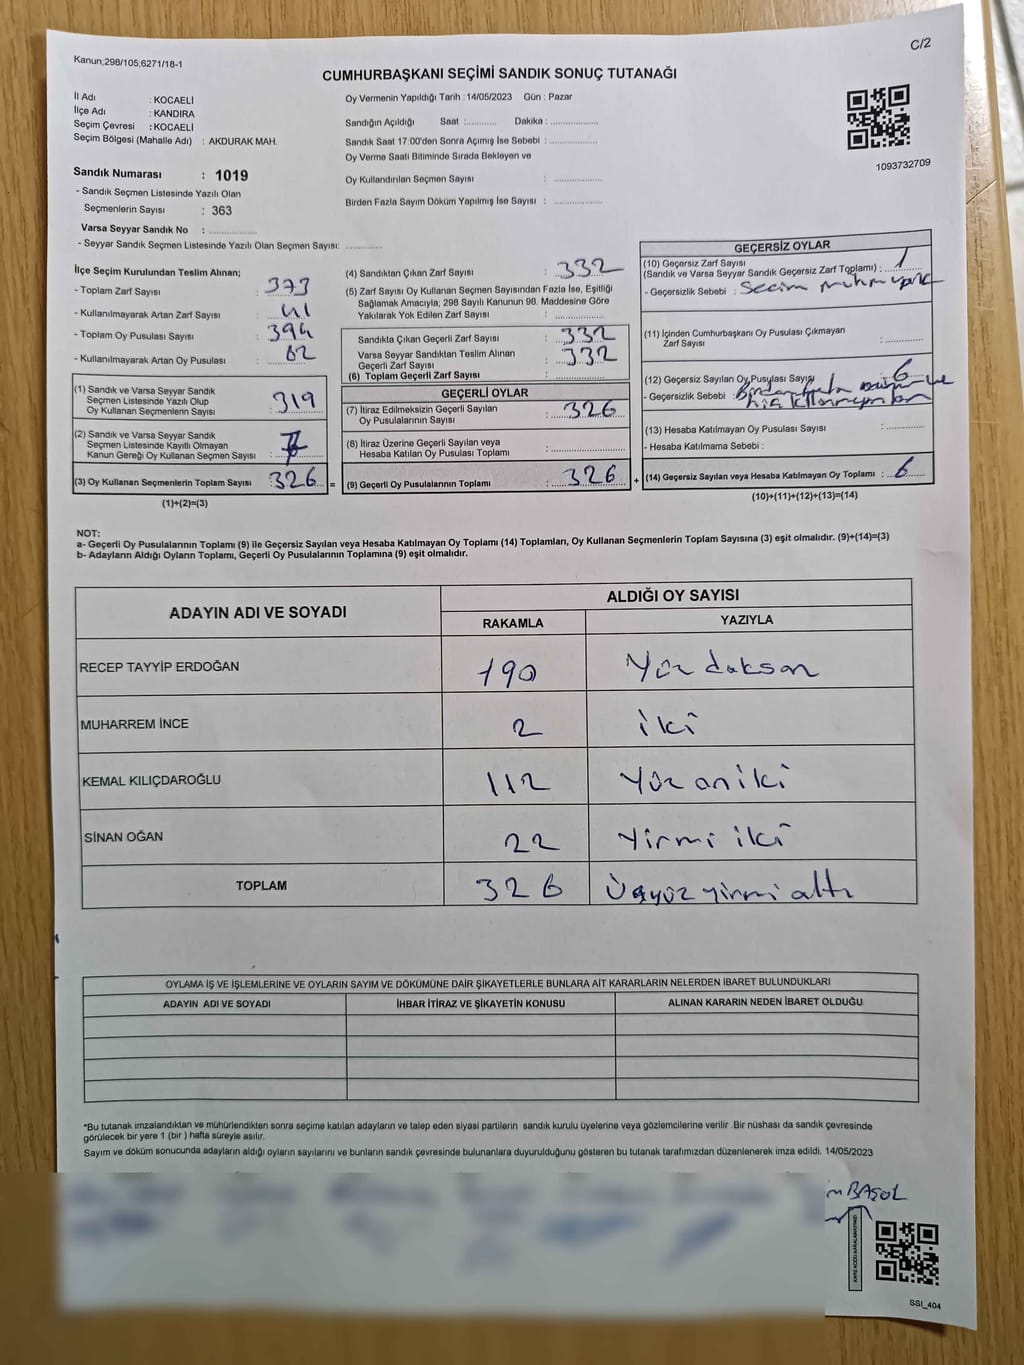 C/2
Kanun;298/105;6271/18-1
CUMHURBAŞKANI SEÇİMİ SANDIK SONUÇ TUTANAĞI
İl Adı : KOCAELİ
İlçe Adı : KANDIRA
Seçim Çevresi : KOCAELİ
Seçim Bölgesi (Mahalle Adı) : AKDURAK MAH.
Sandık Numarası : 1019
- Sandık Seçmen Listesinde Yazılı Olan
Seçmenlerin Sayısı : 363
Varsa Seyyar Sandık No : ..............
- Seyyar Sandık Seçmen Listesinde Yazılı Olan Seçmen Sayısı: ............
Oy Vermenin Yapıldığı Tarih : 14/05/2023 Gün : Pazar
Sandığın Açıldığı Saat :.......... Dakika : ................
Sandık Saat 17:00'den Sonra Açımış İse Sebebi : ................
Oy Verme Saati Bitiminde Sırada Bekleyen ve
Oy Kullandırılan Seçmen Sayısı : ................
Birden Fazla Sayım Döküm Yapılmış İse Sayısı : ................
1093732709
İlçe Seçim Kurulundan Teslim Alınan;
- Toplam Zarf Sayısı : 373
- Kullanılmayarak Artan Zarf Sayısı : 41
- Toplam Oy Pusulası Sayısı : 394
- Kullanılmayarak Artan Oy Pusulası : 62
(1) Sandık ve Varsa Seyyar Sandık
Seçmen Listesinde Yazılı Olup
Oy Kullanan Seçmenlerin Sayısı : 319
(2) Sandık ve Varsa Seyyar Sandık
Seçmen Listesinde Kayıtlı Olmayan
Kanun Gereği Oy Kullanan Seçmen Sayısı : 7
(3) Oy Kullanan Seçmenlerin Toplam Sayısı : 326 =
(1)+(2)=(3)
(4) Sandıktan Çıkan Zarf Sayısı : 332
(5) Zarf Sayısı Oy Kullanan Seçmen Sayısından Fazla İse, Eşitliği
Sağlamak Amacıyla, 298 Sayılı Kanunun 98. Maddesine Göre
Yakılarak Yok Edilen Zarf Sayısı : ................
Sandıkta Çıkan Geçerli Zarf Sayısı : 332
Varsa Seyyar Sandıktan Teslim Alınan
Geçerli Zarf Sayısı : 332
(6) Toplam Geçerli Zarf Sayısı : ................
GEÇERLİ OYLAR
(7) İtiraz Edilmeksizin Geçerli Sayılan
Oy Pusulalarının Sayısı : 326
(8) İtiraz Üzerine Geçerli Sayılan veya
Hesaba Katılan Oy Pusulası Toplamı : ................
(9) Geçerli Oy Pusulalarının Toplamı : 326 +
GEÇERSİZ OYLAR
(10) Geçersiz Zarf Sayısı
(Sandık ve Varsa Seyyar Sandık Geçersiz Zarf Toplamı) : 1
- Geçersizlik Sebebi : Secim
(11) İçinden Cumhurbaşkanı Oy Pusulası Çıkmayan
Zarf Sayısı : ............
(12) Geçersiz Sayılan Oy Pusulası Sayısı : 6
- Geçersizlik Sebebi : Birden fazla
(13) Hesaba Katılmayan Oy Pusulası Sayısı : ............
- Hesaba Katılmama Sebebi :
(14) Geçersiz Sayılan veya Hesaba Katılmayan Oy Toplamı : 6
(10)+(11)+(12)+(13)=(14)
NOT:
a- Geçerli Oy Pusulalarının Toplamı (9) ile Geçersiz Sayılan veya Hesaba Katılmayan Oy Toplamı (14) Toplamları, Oy Kullanan Seçmenlerin Toplam Sayısına (3) eşit olmalıdır. (9)+(14)=(3)
b- Adayların Aldığı Oyların Toplamı, Geçerli Oy Pusulalarının Toplamına (9) eşit olmalıdır.
ADAYIN ADI VE SOYADI
ALDIĞI OY SAYISI
RAKAMLA YAZIYLA
RECEP TAYYİP ERDOĞAN 190 Yüz doksan
MUHARREM İNCE 2 iki
KEMAL KILIÇDAROĞLU 112 Yüz oniki
SİNAN OĞAN 22 Yirmi iki
TOPLAM 326 Üçyüz yirmi altı
OYLAMA İŞ VE İŞLEMLERİNE VE OYLARIN SAYIM VE DÖKÜMÜNE DAİR ŞİKAYETLERLE BUNLARA AİT KARARLARIN NELERDEN İBARET BULUNDUKLARI
ADAYIN ADI VE SOYADI İHBAR İTİRAZ VE ŞİKAYETİN KONUSU ALINAN KARARIN NEDEN İBARET OLDUĞU
*Bu tutanak imzalandıktan ve mühürlendikten sonra seçime katılan adayların ve talep eden siyasi partilerin sandık kurulu üyelerine veya gözlemcilerine verilir .Bir nüshası da sandık çevresinde
görülecek bir yere 1 (bir ) hafta süreyle asılır.
Sayım ve döküm sonucunda adayların aldığı oyların sayılarını ve bunların sandık çevresinde bulunanlara duyurulduğunu gösteren bu tutanak tarafımızdan düzenlenerek imza edildi. 14/05/2023
BAŞOL
SSI_404